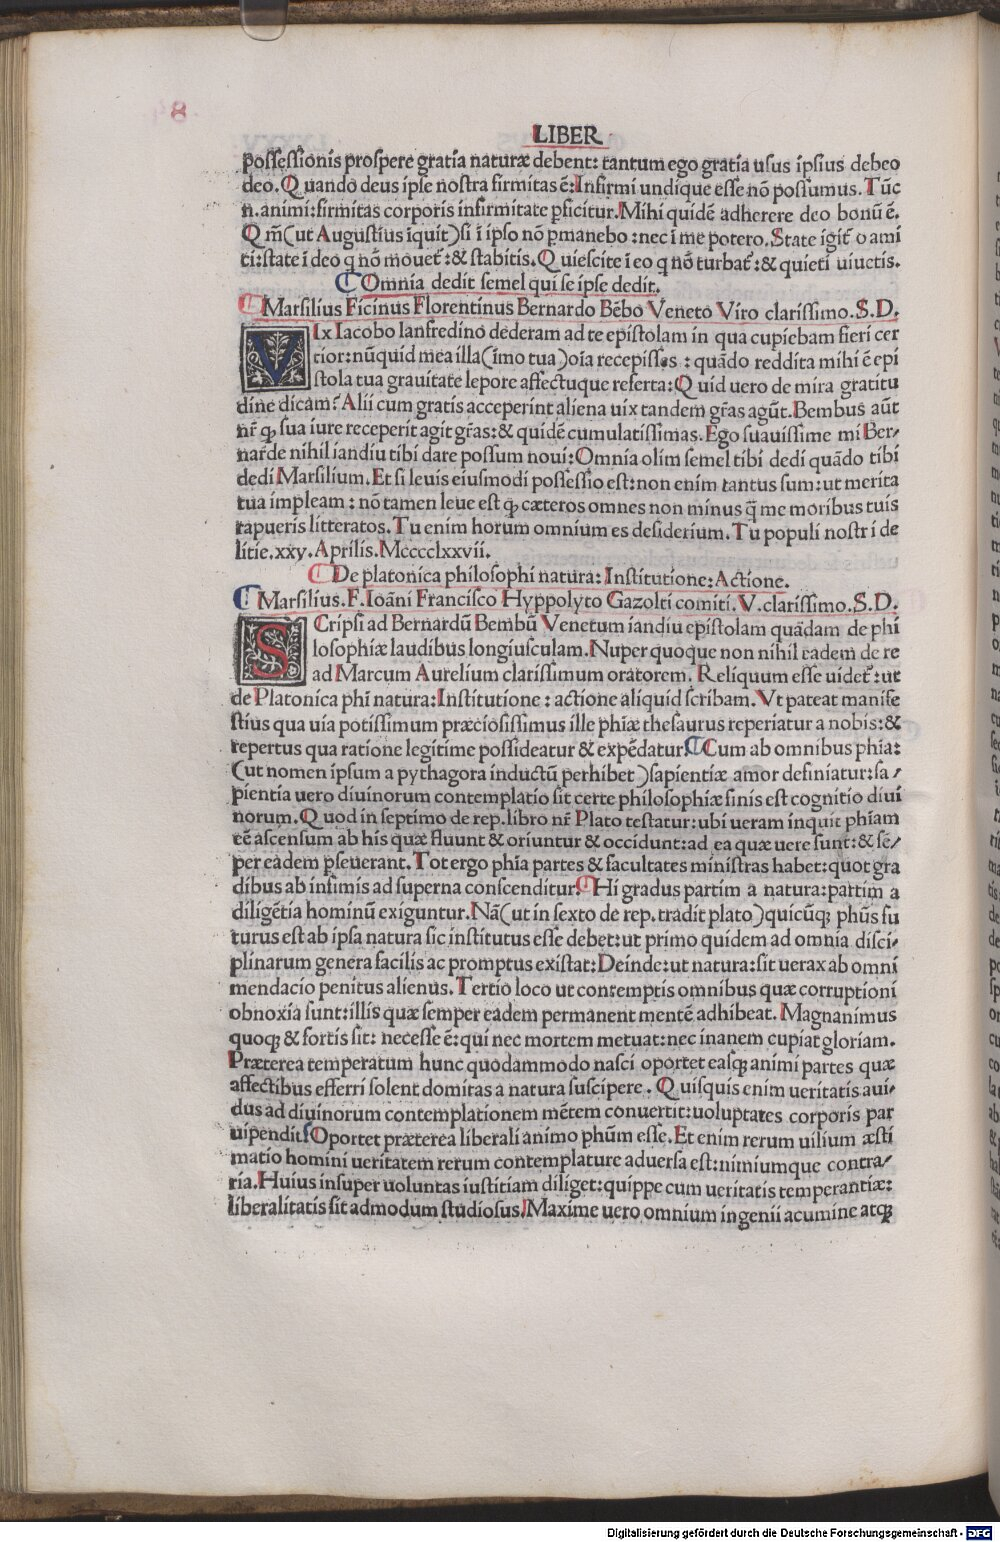 LIBER
possessionis prospere gratia naturæ debent: tantum ego gratia usus ipsius debeo
deo. Quando deus ipse nostra firmitas ē: Infirmi undique esse nō possumus. Tūc
n. animi: firmitas corporis infirmitate ꝑficitur. Mihi quidē adherere deo bonū ē.
Qm̄ (ut Augustius īquit) si ī ipso nō ꝑmanebo: nec ī me potero. State igit̄ o ami
ti: state ī deo q nō mouet̄: & stabitis. Quiescite ī eo q nō turbat̄: & quieti uiuetis.
Omnia dedit semel qui se ipse dedit.
Marsilius Ficinus Florentinus Bernardo Bēbo Veneto Viro clarissimo. S. D.
VIx Iacobo lanfredino dederam ad te epistolam in qua cupiebam fieri cer
tior: nūquid mea illa (imo tua) oīa recepisses: quādo reddita mihi ē epi
stola tua grauitate lepore affectuque referta: Quid uero de mira gratitu
dine dicam? Alii cum gratis acceperint aliena uix tandem gr̄as agūt. Bembus aūt
nr̄ ꝙ sua iure receperit agit gr̄as: & quidē cumulatissimas. Ego suauissime mi Ber-
nar̄de nihil iandiu tibi dare possum noui: Omnia olim semel tibi dedi quādo tibi
dedi Marsilium. Et si leuis eiusmodi possessio est: non enim tantus sum: ut merita
tua impleam: nō tamen leue est ꝙ cæteros omnes non minus q̄ me moribus tuis
rapueris litteratos. Tu enim horum omnium es desiderium. Tu populi nostri de
litie. xxy. Aprilis. Mcccclxxvii.
De platonica philosophi natura: Institutione: Actione.
Marsilius. F. Ioāni Francisco Hyppolyto Gazolti comiti. V. clarissimo. S. D.
SCripsi ad Bernardū Bembū Venetum iandiu epistolam quādam de phi
losophiæ laudibus longiusculam. Nuper quoque non nihil eadem de re
ad Marcum Aurelium clarissimum oratorem. Reliquum esse uidet̄: ut
de Platonica phī natura: Institutione: actione aliquid scribam. Vt pateat manife
stius qua uia potissimum præciosissimus ille phiæ thesaurus reperiatur a nobis: &
repertus qua ratione legitime possideatur & expēdatur. Cum ab omnibus phia:
(ut nomen ipsum a pythagora inductū perhibet) sapientiæ amor definiatur: sa-
pientia uero diuinorum contemplatio sit certe philosophiæ finis est cognitio diui
norum. Quod in septimo de rep. libro nr̄ Plato testatur: ubi ueram inquit phiam
eē ascensum ab his quæ fluunt & oriuntur & occidunt: ad ea quæ uere sunt: & sē-
per eadem ꝑseuerant. Tot ergo phia partes & facultates ministras habet: quot gra
dibus ab infimis ad superna conscenditur. Hi gradus partim a natura: partim a
diligētia hominū exiguntur. Nā (ut in sexto de rep. tradit plato) quicūqꝫ phūs fu
turus est ab ipsa natura sic institutus esse debet: ut primo quidem ad omnia disci-
plinarum genera facilis ac promptus existat: Deinde: ut natura: sit uerax ab omni
mendacio penitus alienus. Tertio loco ut contemptis omnibus quæ corruptioni
obnoxia sunt: illis quæ semper eadem permanent mentē adhibeat. Magnanimus
quoqꝫ & fortis sit: necesse ē: qui nec mortem metuat: nec inanem cupiat gloriam.
Præterea temperatum hunc quodammodo nasci oportet easqꝫ animi partes quæ
affectibus efferri solent domitas a natura suscipere. Quisquis enim ueritatis aui-
dus ad diuinorum contemplationem mētem conuertit: uoluptates corporis par
uipendit. Oportet præterea liberali animo phūm esse. Et enim rerum uilium æsti
matio homini ueritatem rerum contemplature aduersa est: nimiumque contra-
ria. Huius insuper uoluntas iustitiam diliget: quippe cum ueritatis temperantiæ:
liberalitatis sit admodum studiosus. Maxime uero omnium ingenii acumine atqꝫ
Digitalisierung gefördert durch die Deutsche Forschungsgemeinschaft - DFG